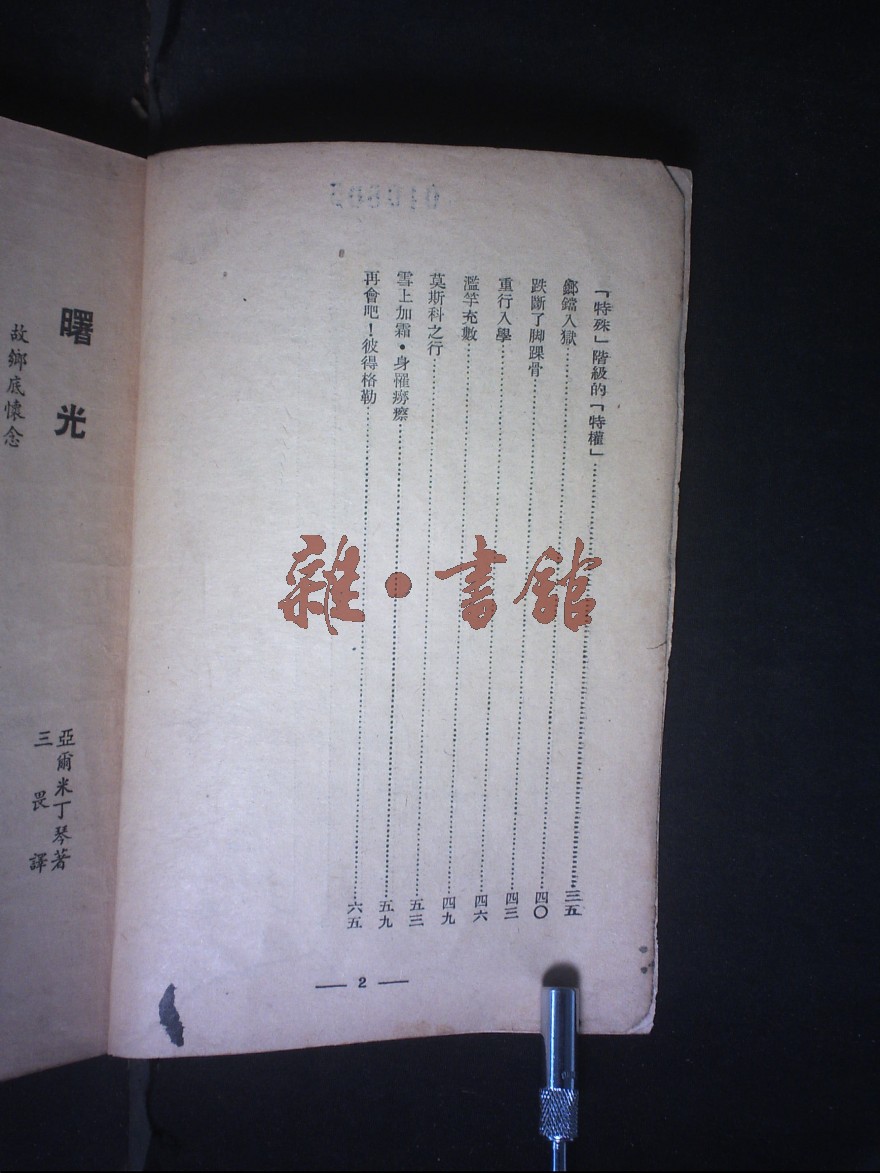 「特殊」階級的「特權」……三五
鎯鐺入獄……四〇
跌斷了脚踝骨……四三
重行入學……四六
濫竽充數……四九
莫斯科之行……五三
雪上加霜•身罹痨瘵……五九
再會吧！彼得格勒……六五
— 2 —
雜•書館
曙光
故鄉底懷念
亞爾米丁琴著
三畏譯